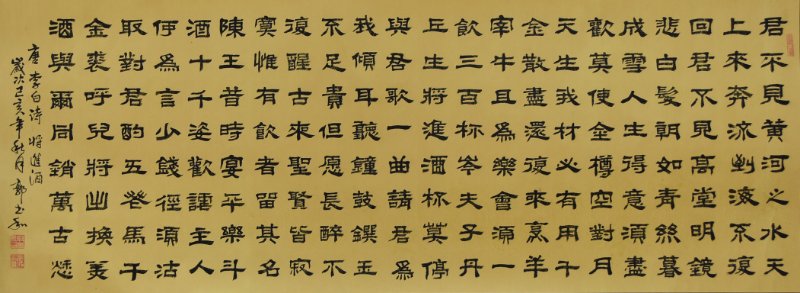 君不見黃河之水天
上來奔流到海不復
回君不見高堂明鏡
悲白髮朝如青絲暮
成雪人生得意須盡
歡莫使金樽空對月
天生我材必有用千
金散盡還復來烹羊
宰牛且為樂會須一
飲三百杯岑夫子丹
丘生將進酒杯莫停
與君歌一曲請君為
我傾耳聽鐘鼓饌玉
不足貴但愿長醉不
復醒古來聖賢皆寂
寞惟有飲者留其名
陳王昔時宴平樂斗
酒十千姿歡謔主人
何為言少錢徑須沽
取對君酌五花馬千
金裘呼兒將出換美
酒與爾同銷萬古愁
唐李白诗將進酒
歲次己亥年秋月郭玉